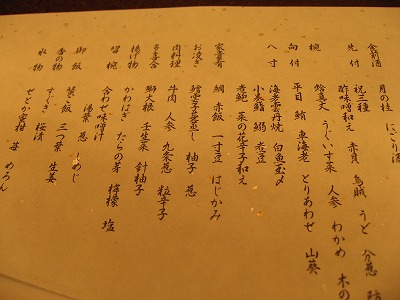 食前酒　月の桂　にごり酒
先付　祝三種
酢味噌和え　赤貝　烏賊　うど　分葱　防
うぐいす菜　人参　わかめ　木の
椀　蛤真丈
向付　平目　鮪　車海老　とりあわせ　山葵
八寸　海老雲丹焼　白魚玉〆
小川鮨　鰯　老豆
煮鮑　菜の花辛子和え
家喜肴　鯛　赤飯　一寸豆　はじかみ
お凌ぎ　雲子　蒸し　柚子　葱
肉料理　牛肉　人参　九条葱　粒辛子
多喜合　鰤大根　壬生菜　針柚子
揚げ物　かわはぎ　たらの芽　檸檬　塩
留椀　合わせ味噌汁
湯葉　葱　しめじ
御飯　三つ葉　生姜
香の物　すぐき　桜漬
水物　せとか蜜柑　苺　めろん